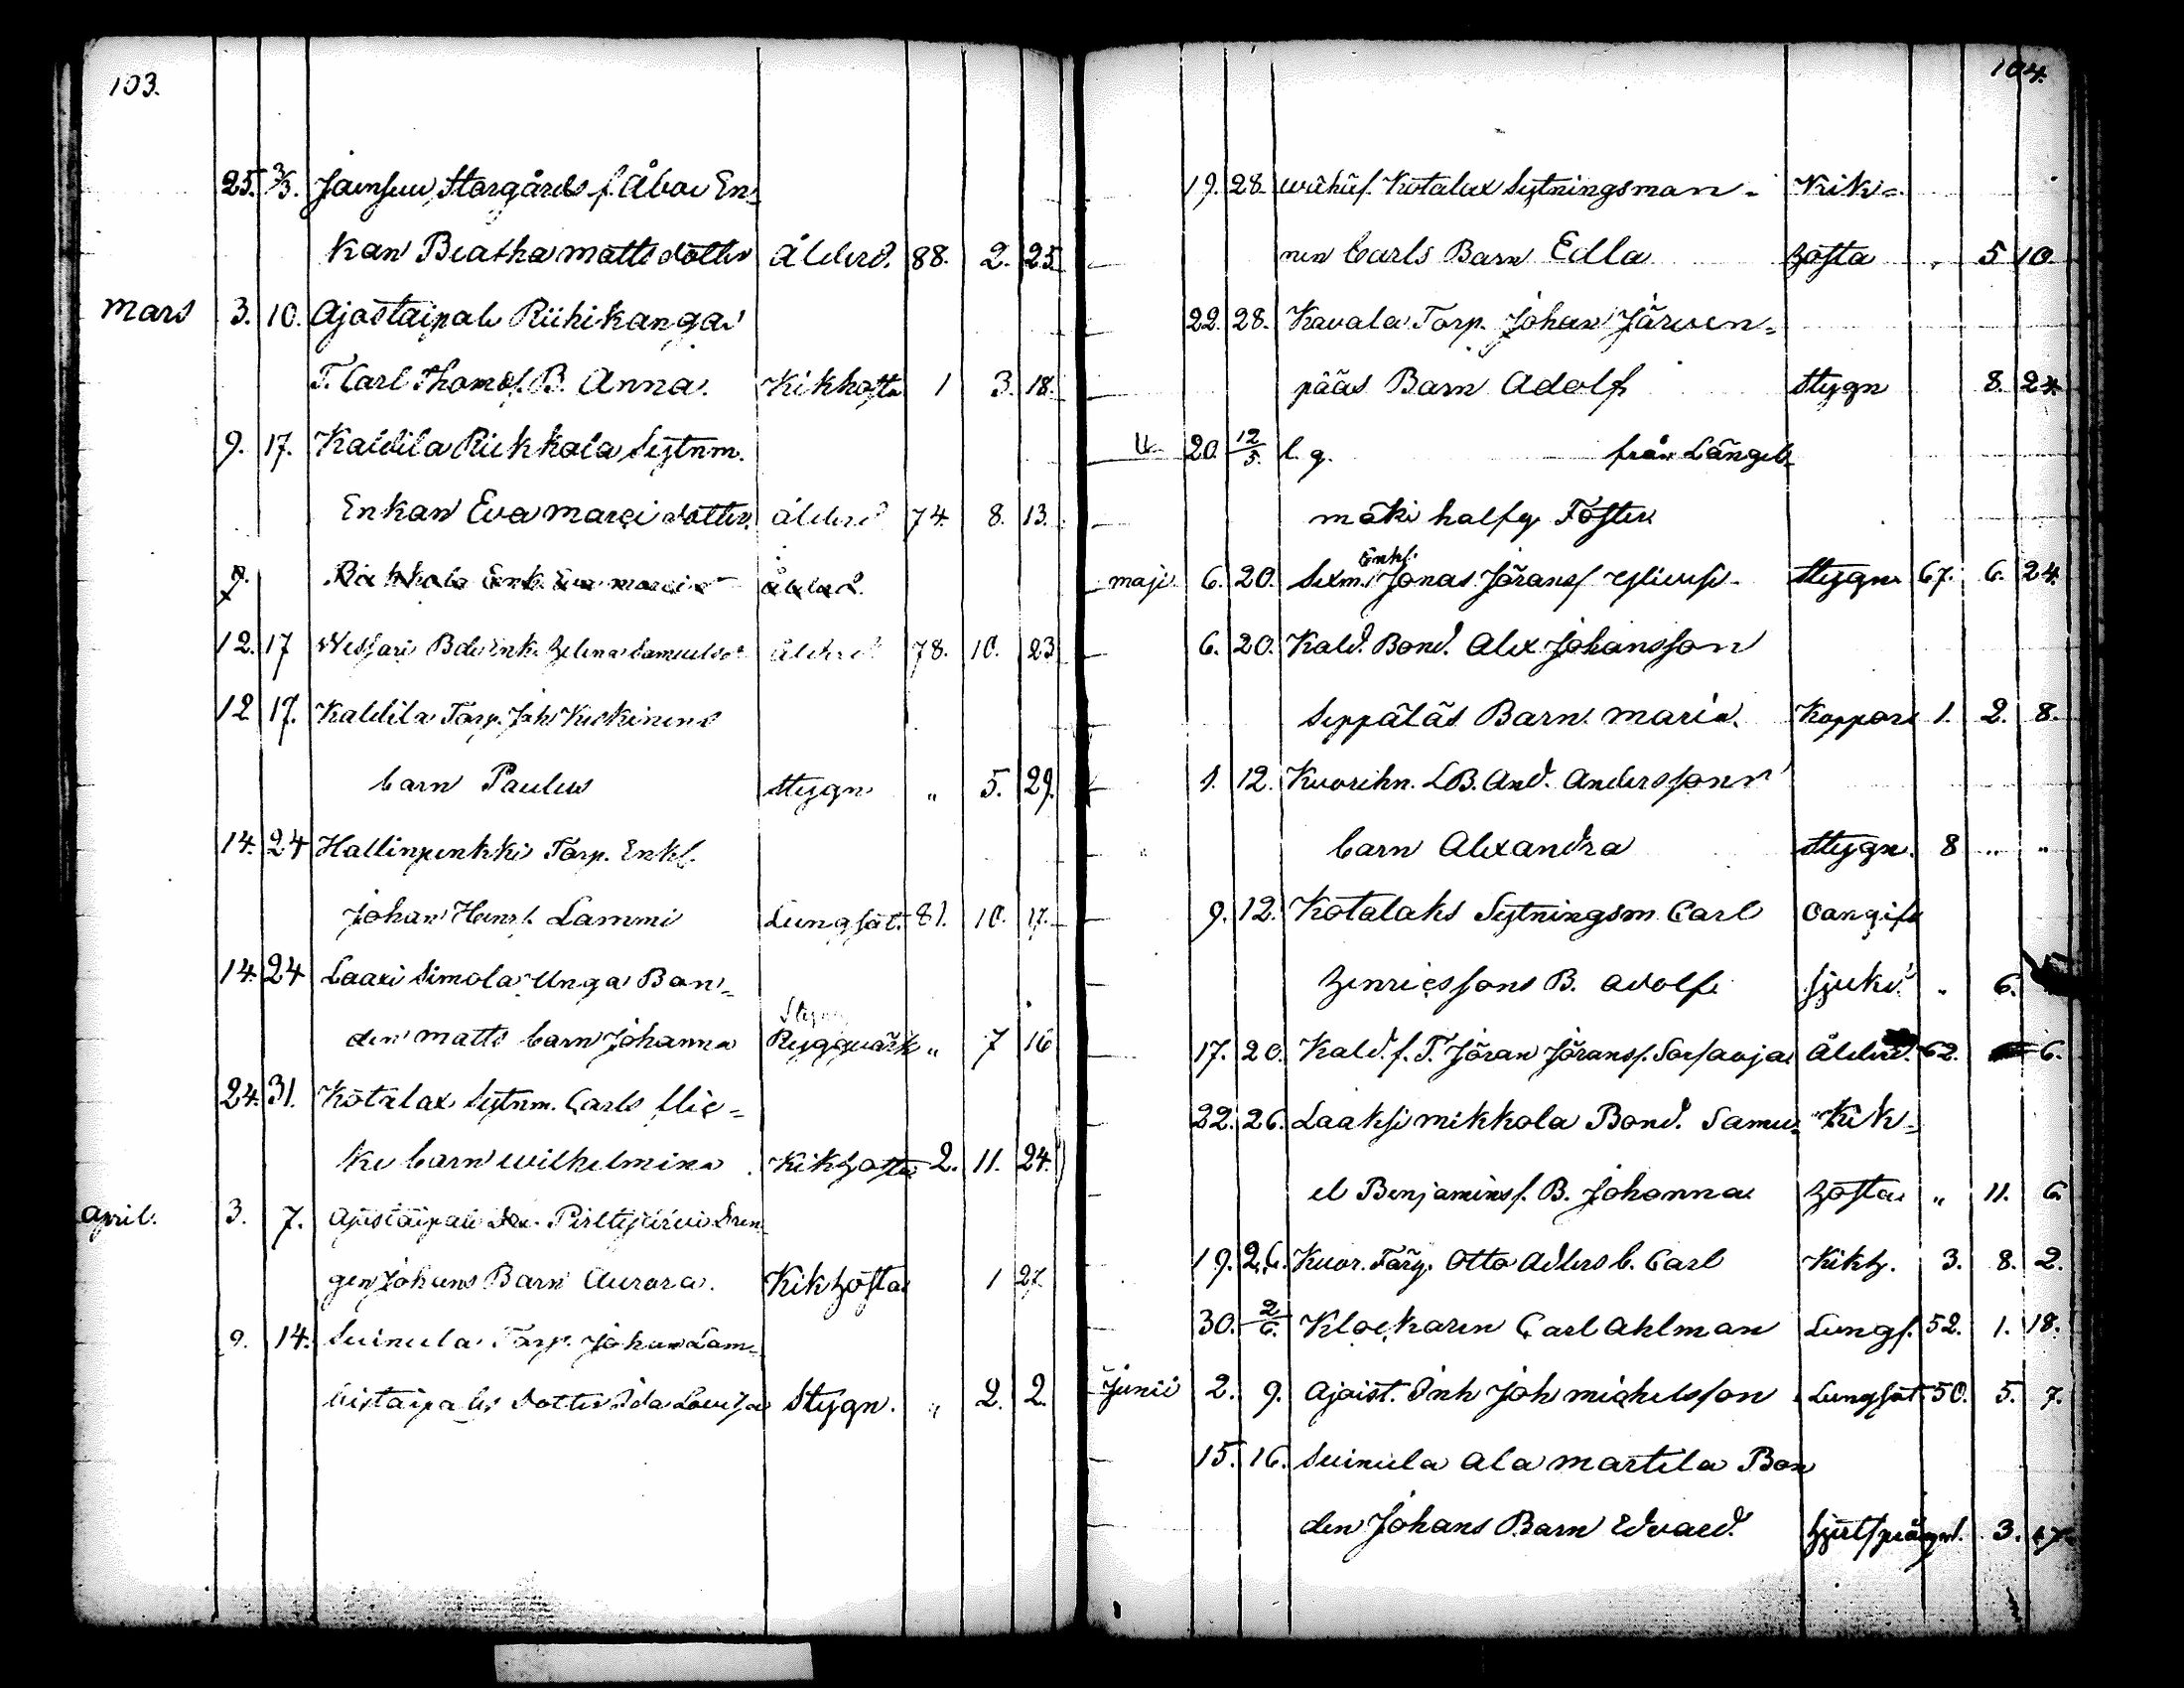 103.
25. 2/3. Jamsuu Storgårds f. Åboe En=
kan Beatha Matts dotter Ålderd. 88. 2. 25.
Mars 3. 10. Ajostaipale Riihikangas
T. Carl Thomæs. B. Anna. Kikhosta 1 3. 18.
9. 17. Kaldila Riekkola Sytnm.
Enkan Eva Marci dotter ålderd 74. 8. 13.
9. Riekkola Enk. Eva Marci d ålderd.
12. 17 Wessari Bde Enk. Helena Samuelsdr ålderd. 78. 10. 23
12 17. Kaldila Torp. Joh Keskinens
barn Paulus Stygn " 5. 29.
14. 24 Hallinpenkki Torp. Enkl.
Johan Henrs. Lammi Lungsot. 81. 10. 17.
14. 24 Laaxi Simola Unga Bon=
den Matts barn Johanna Stygn Ryggvärk " 7 16
24. 31. Kotalax Sytnm. Carls flic=
ke barn Wilhelmina Kikhosta 2. 11. 24.
April. 3. 7. Ajostaipale Pirttijärvi Dren
gen Johans Barn Aurora. Kikhosta 1 27.
9. 14. Suinula Torp. Johan Lam=
bistaipales dotter Ida Lovisa Stygn. " 2. 2.
104.
19. 28. Kotalax Sytningsman= Kik=
nen Carls Barn Edla hosta " 5 10.
22. 28. Kavala Torp. Johan Järven=
pääs Barn Adolf Stygn 8. 24.
20. 12/5. l. g. från Längel=
mäki halfg. Foster
Maji 6. 20. Sexm. Enkl. Jonas Jöransf Stygn 67. 6. 24.
6. 20. Kald. Bond. Alex Johansson
Seppäläs Barn Maria. Koppor 1. 2. 8.
1. 12. Kuorehn. LB. And. Anderssons
barn Alexandra Stygn. 8 " "
9. 12. Kotalaks Sytningsm. Carl oangifv
Henricssons B. Adolf sjukd. " 6.
17. 20. Kald. f. T. Jöran Jöransf. Ålderd. 62. 6.
22. 26. Laaksi Mikkola Bond. Samu= Kik=
el Benjaminsf. B. Johanna hosta " 11. 6.
19. 26. Kuor. Färg. Otto Adlers b. Carl Kikh. 3. 8. 2.
30. 2/6. Klockaren Carl Ahlman Lungs. 52. 1. 18.
Junii 2. 9. Ajoist. Inh Joh Michelsson Lungsot 50. 5. 7.
15. 16. Suinula Ala Martila Bon
den Johans Barn Edvard. hjertsprångd. 3. 17.